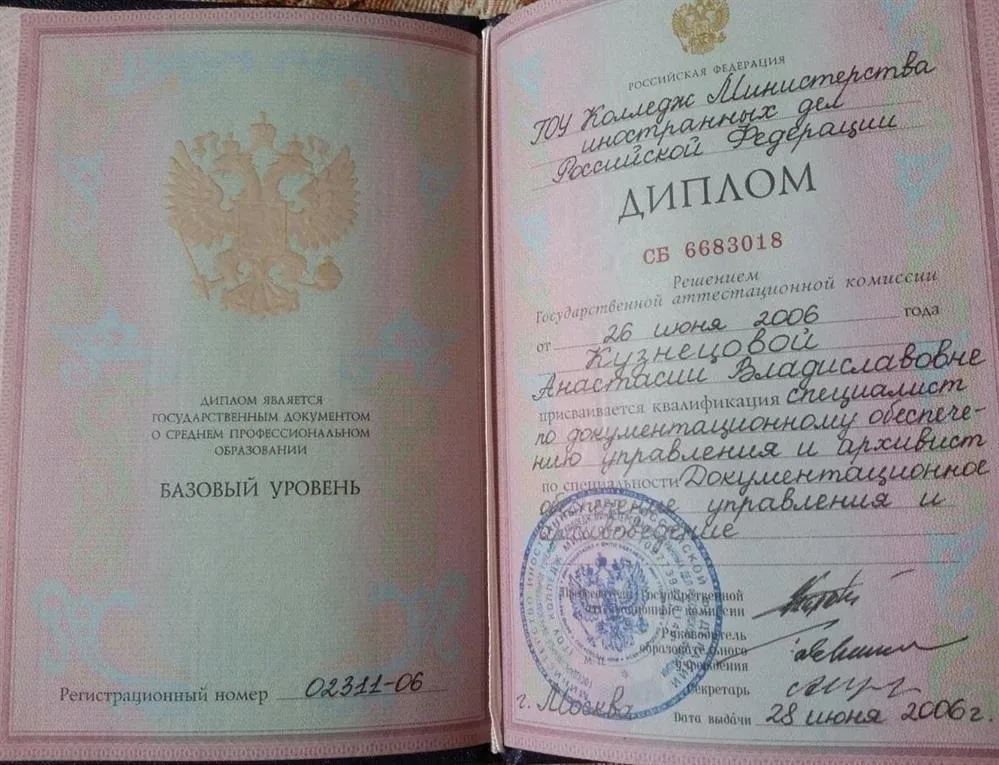 ДИПЛОМ ЯВЛЯЕТСЯ
ГОСУДАРСТВЕННЫМ ДОКУМЕНТОМ
О СРЕДНЕМ ПРОФЕССИОНАЛЬНОМ
ОБРАЗОВАНИИ
БАЗОВЫЙ УРОВЕНЬ
Регистрационный номер 02311-06
РОССИЙСКАЯ ФЕДЕРАЦИЯ
ГОУ Колледж Министерства
иностранных дел
Российской Федерации
ДИПЛОМ
СБ 6683018
Решением
Государственной аттестационной комиссии
от 26 июня 2006 года
Кузнецовой
Анастасии Владиславовне
присваивается квалификация специалист
по документационному обеспече-
нию управления и архивист
по специальности Документационное
обеспечение управления и
архивоведение
Председатель Государственной
аттестационной комиссии
Руководитель
образовательного
учреждения
Секретарь
г. Москва
Дата выдачи 28 июня 2006г.